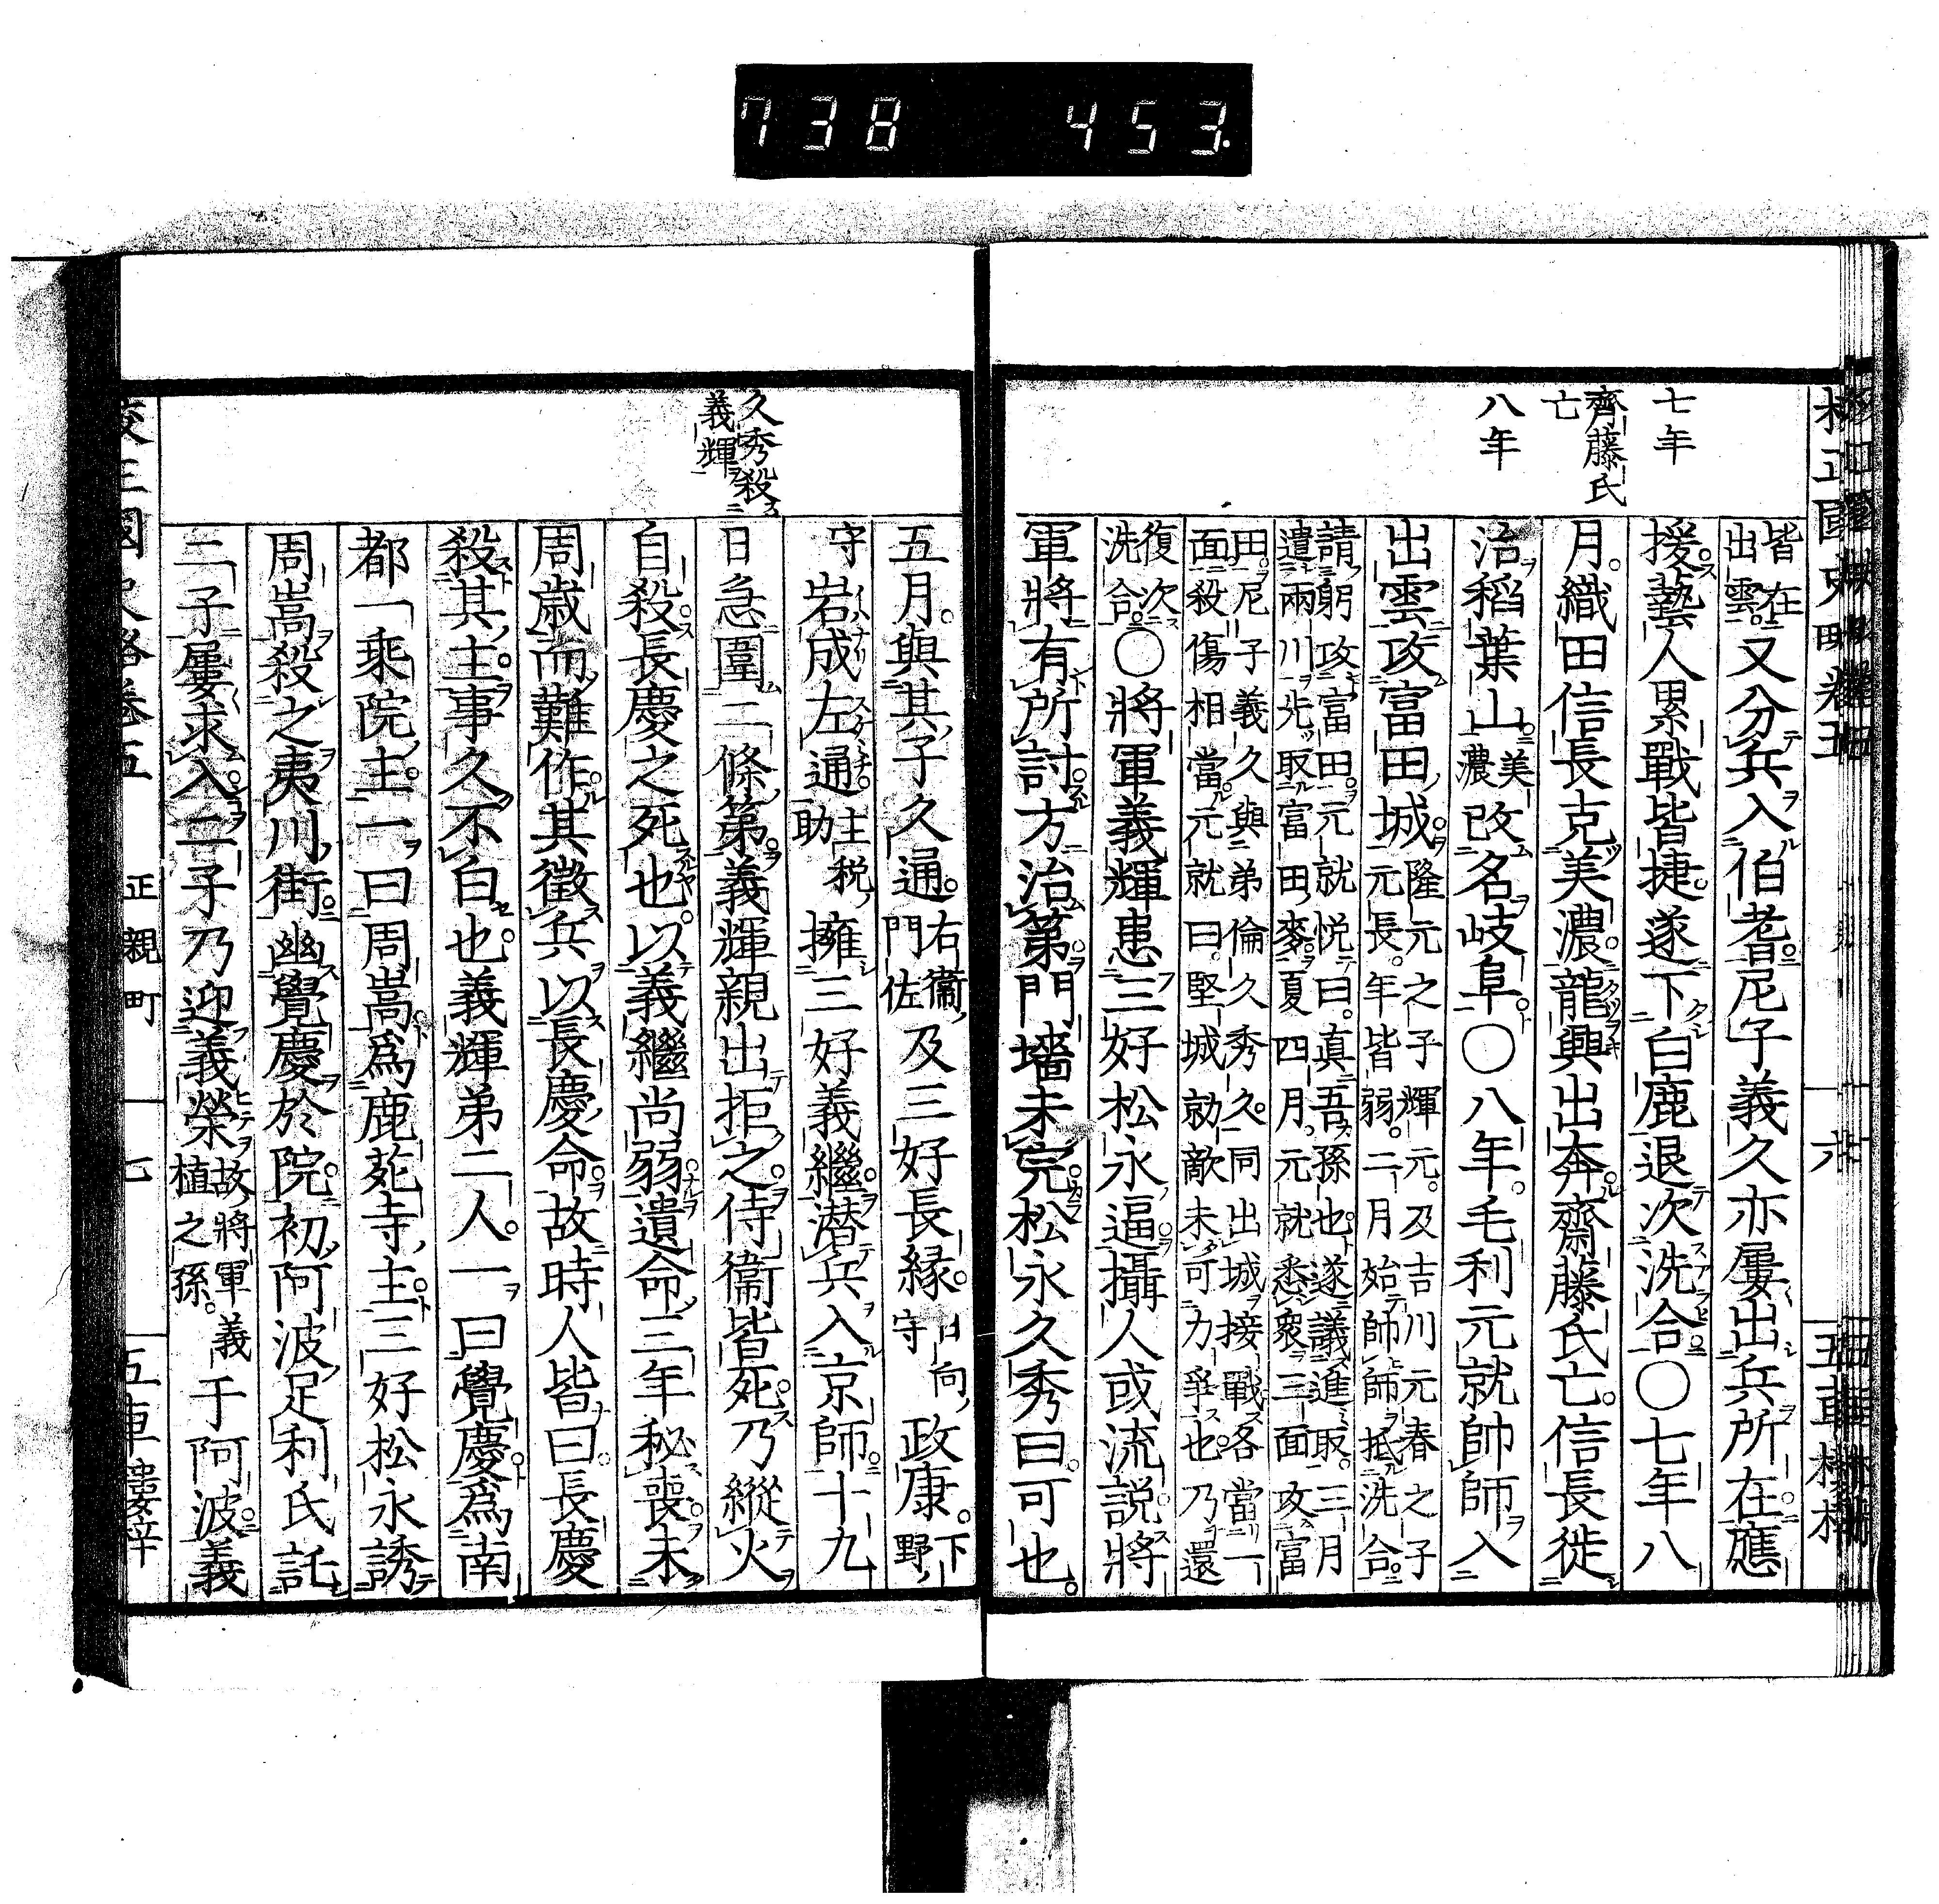 738 453.
七年
齊藤氏
亡
八年
皆在
出雲。又分兵入伯耆尼子義久亦屢出兵所在應
援。藝人累戰皆捷。遂下白鹿退次洗合〇七年八
月。織田信長克美濃。龍興出奔。齋藤氏亡。信長徙
治稻葉山。美濃改名岐阜。〇八年。毛利元就帥師入
出雲攻富田城。隆元之子輝元。及吉川元春之子
元長。年皆弱。二月始帥師抵洗合。
請躬攻富田。元就悦曰。真吾孫也。遂議進取。三月
遣兩川先取富田麥。夏四月。元就悉衆三面攻富
田。尼子義久與弟倫久秀久。同出城接戰。各當一
面。殺傷相當。元就曰。堅城勍敵未可力爭也。乃還
復次
洗合。〇將軍義輝患三好松永逼攝人或流説將
軍將有所討方治第門墻未完松永久秀曰。可也。
久秀殺
義輝
五月。與其子久通。右衞門佐及三好長緣。日向守政康。下野
守岩成左通。主税助擁三好義繼。潜兵入京師。十九
日急圍二條第。義輝親出拒之。侍衞皆死。乃縱火
自殺。長慶之死也。以義繼尚弱遺命三年秘喪。未
周歳而難作。其徵兵以長慶命。故時人皆曰。長慶
殺其主。事久不白也。義輝弟二人。一曰覺慶爲南
都一乘院主。一曰周暠爲鹿苑寺主。三好松永誘
周暠殺之夷川街。幽覺慶於院。初阿波足利氏託
二子屢求入。二子乃迎義榮故將軍義植之孫。于阿波。義
正親町
七
六